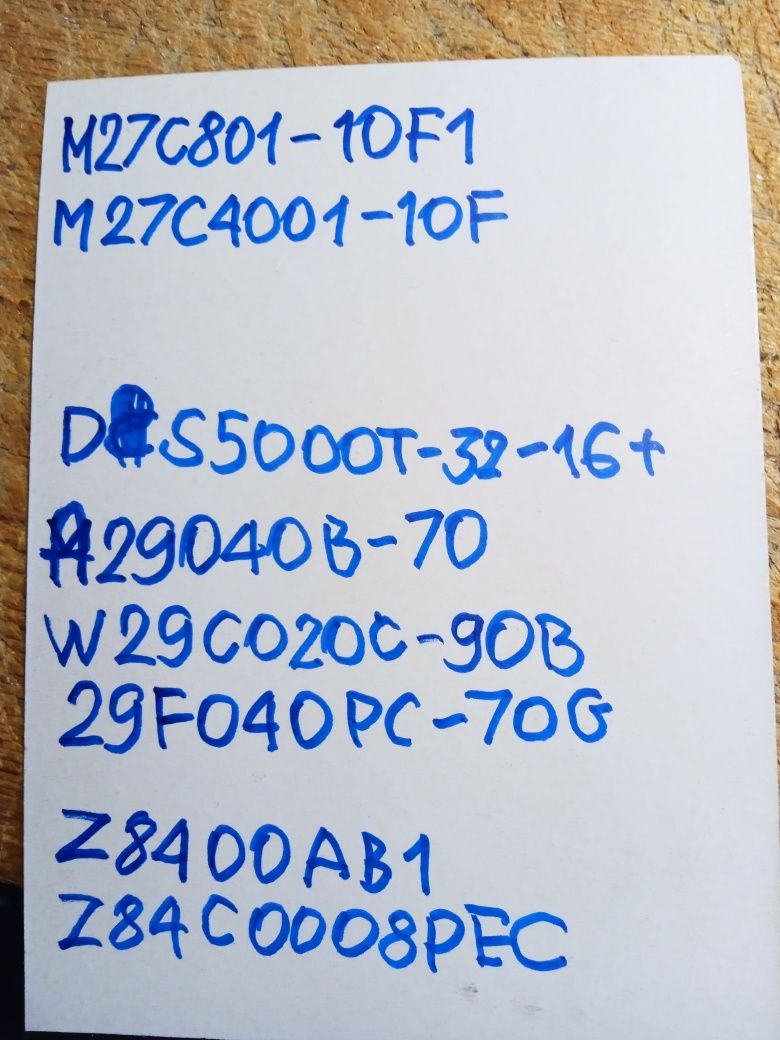 M27C801-10F1
M27C4001-10F
DS5000T-32-16+
A29040B-70
W29C020C-90B
29F040PC-70G
Z8400AB1
Z84C0008PEC